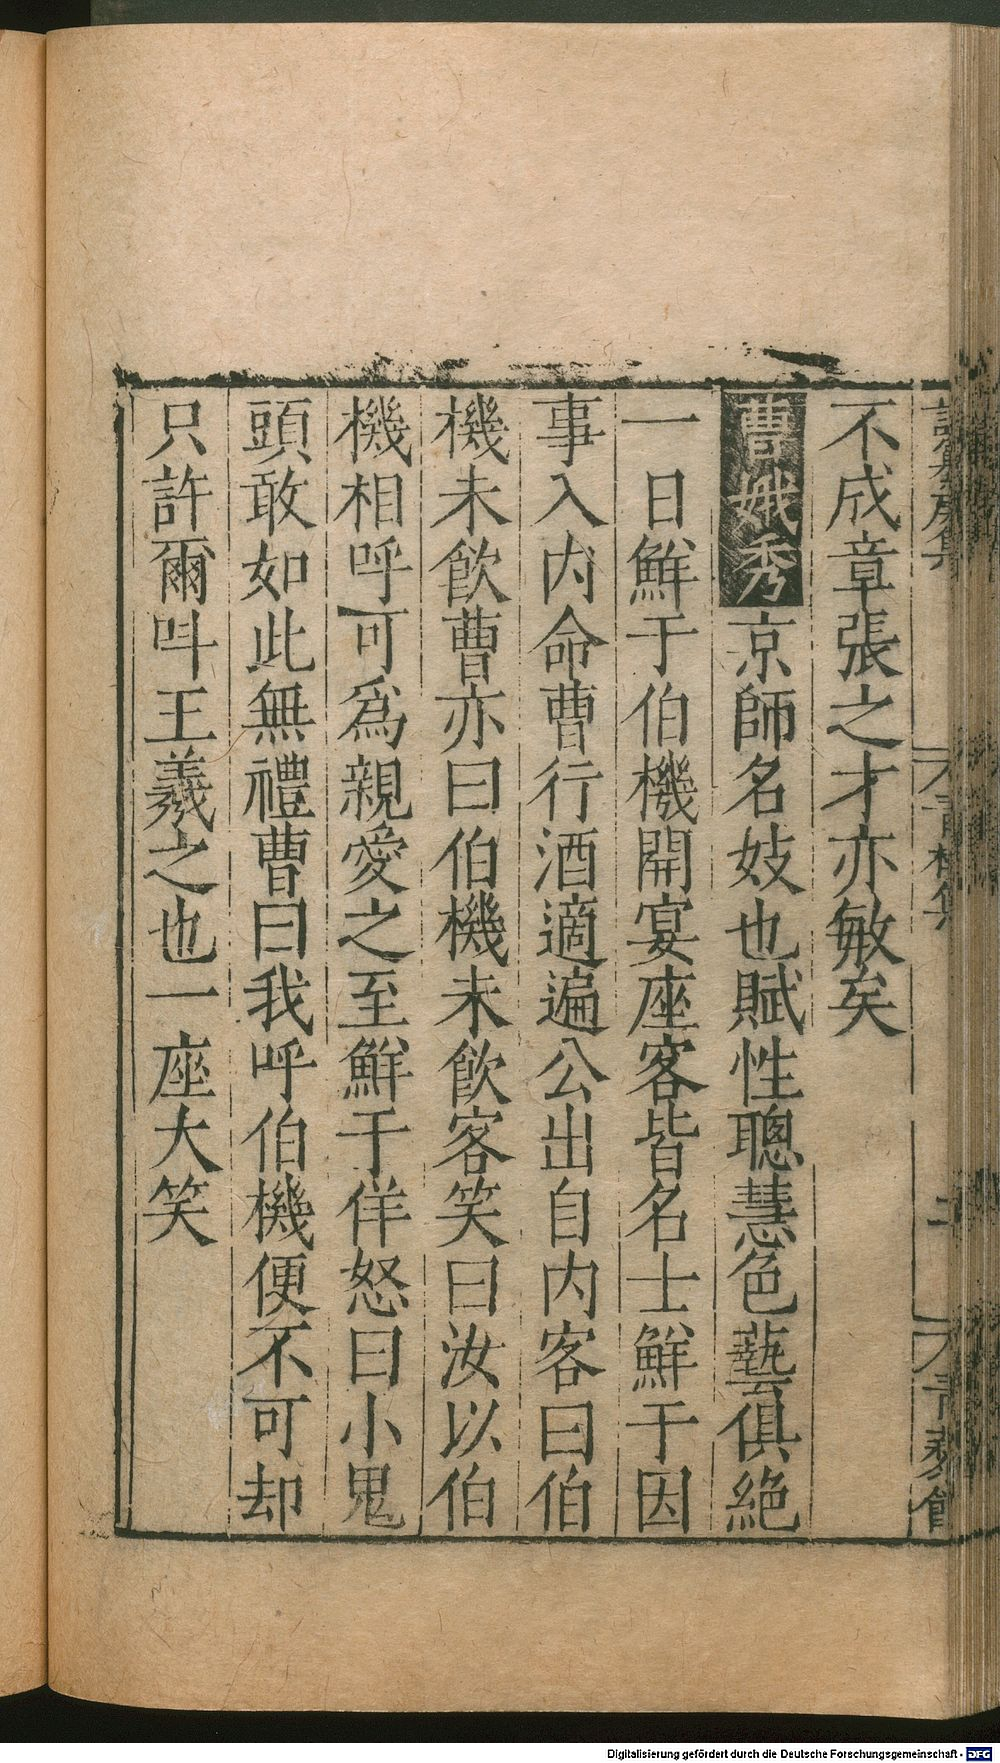 不成章張之才亦敏矣
曹娥秀京師名妓也賦性聰慧色藝俱絕
一日鮮于伯機開宴座客皆名士鮮于因
事入内命曹行酒適遍公出自内客曰伯
機未飲曹亦曰伯機未飲客笑曰汝以伯
機相呼可爲親愛之至鮮于佯怒曰小鬼
頭敢如此無禮曹曰我呼伯機便不可却
只許爾呌王羲之也一座大笑
Digitalisierung gefördert durch die Deutsche Forschungsgemeinschaft - DFG